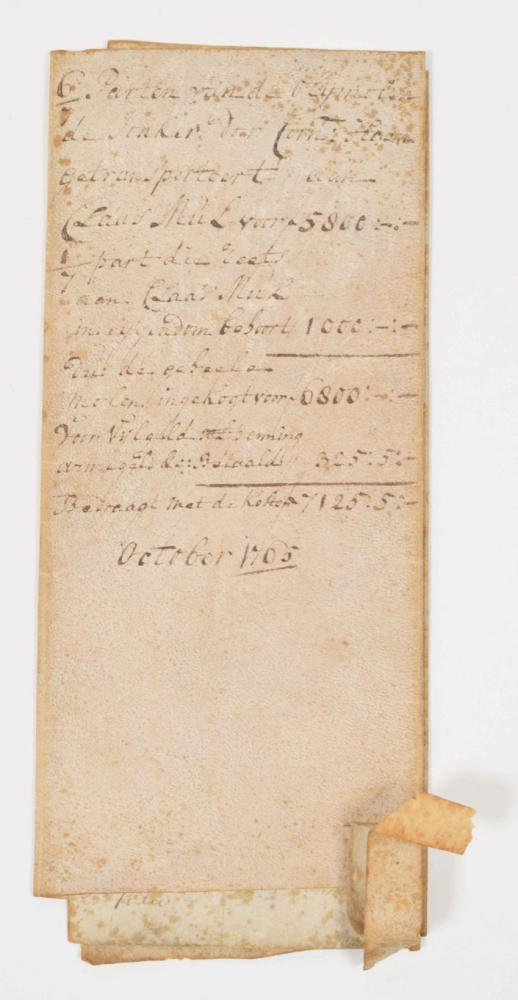 6/7 Parten van de Olymolen
de Jonker Door Corn:s Haen
getransporteert aan
Claas Mul voor 5800:-:-
1/7 part die reets
aan Claas Mul
in eygendom behoort 1000:-:-
Dus de geheele
molen ingekogt voor 6800:-:-
Voor penning
armegeld &c: Betaald 325:5:-
Bedraagt met de Kosten 7125:5:-
October 1765